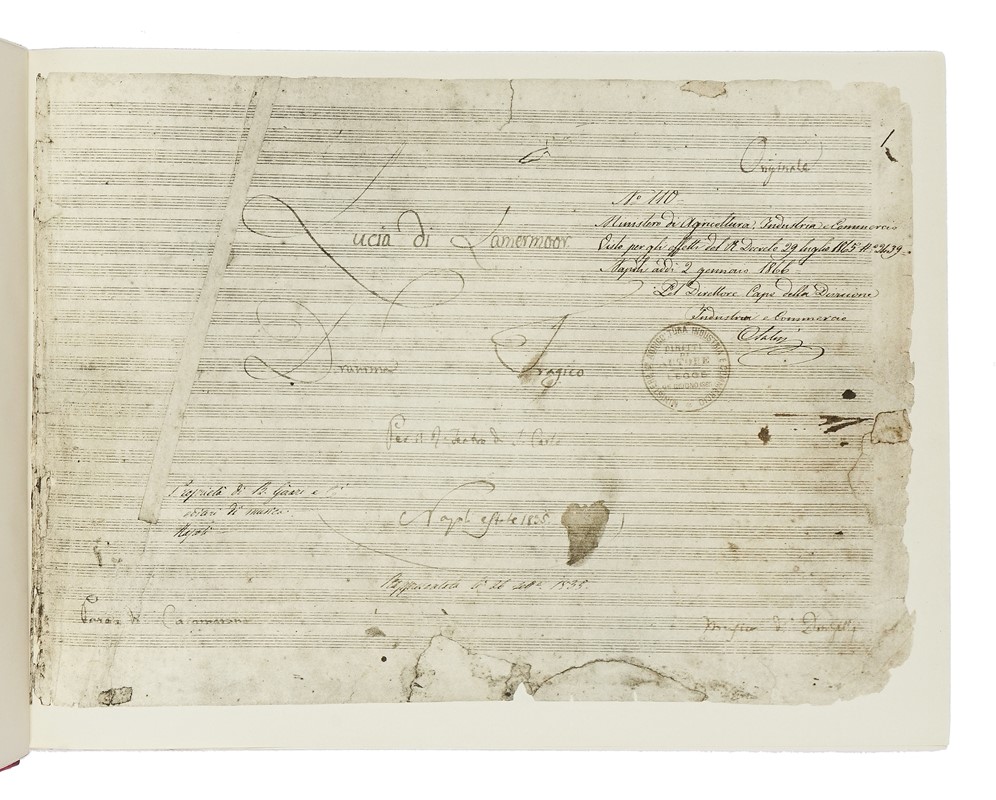 Originale
Nº 110
Ministero di Agricoltura, Industria e Commercio
Visto per gli effetti del R. Decreto 29 luglio 1865 Nº 2439
Napoli addì 2 gennaio 1866
Pel Direttore Capo della Divisione
Industria e Commercio
Lucia di Lamermoor
Dramma Tragico
Per il R. Teatro di S. Carlo
Proprietà di B. Girard e Cⁱ
di musica
Napoli
Napoli estate 1835
Rappresentata li 26 sette 1835
Parole di Cammarano
Musica di Donizetti